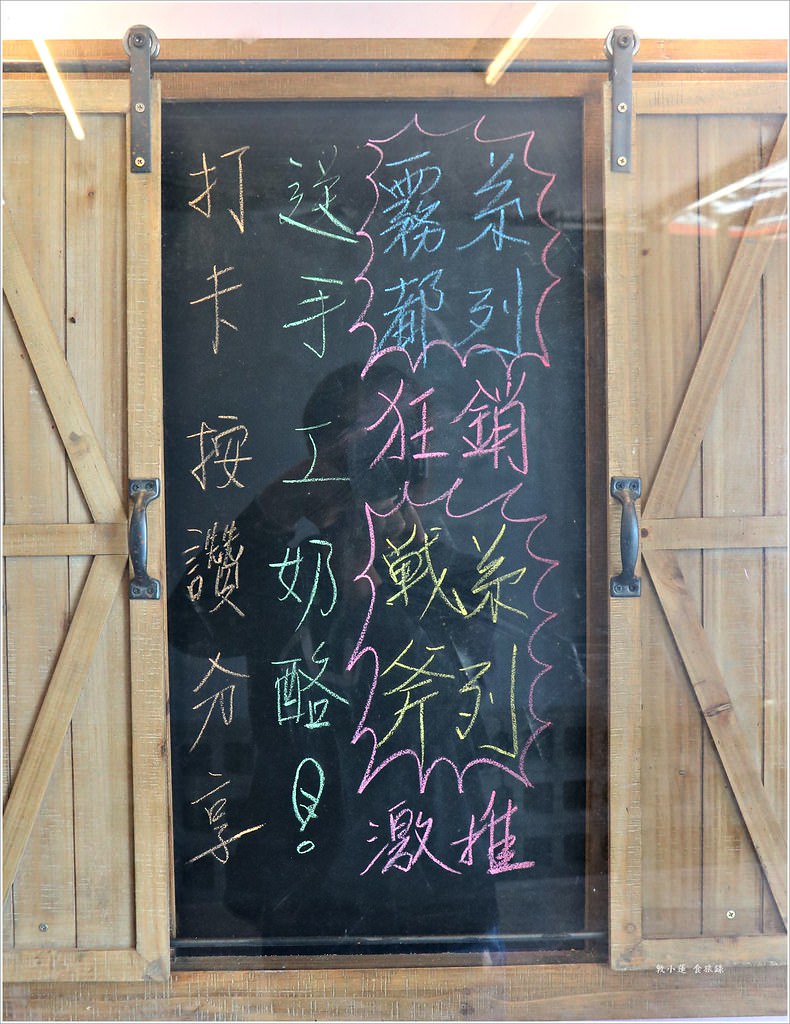 打卡 按讚分享
送手工奶酪!
霧都
系列
狂銷
戦斧
系列
激推
敦小蓮 食旅錄